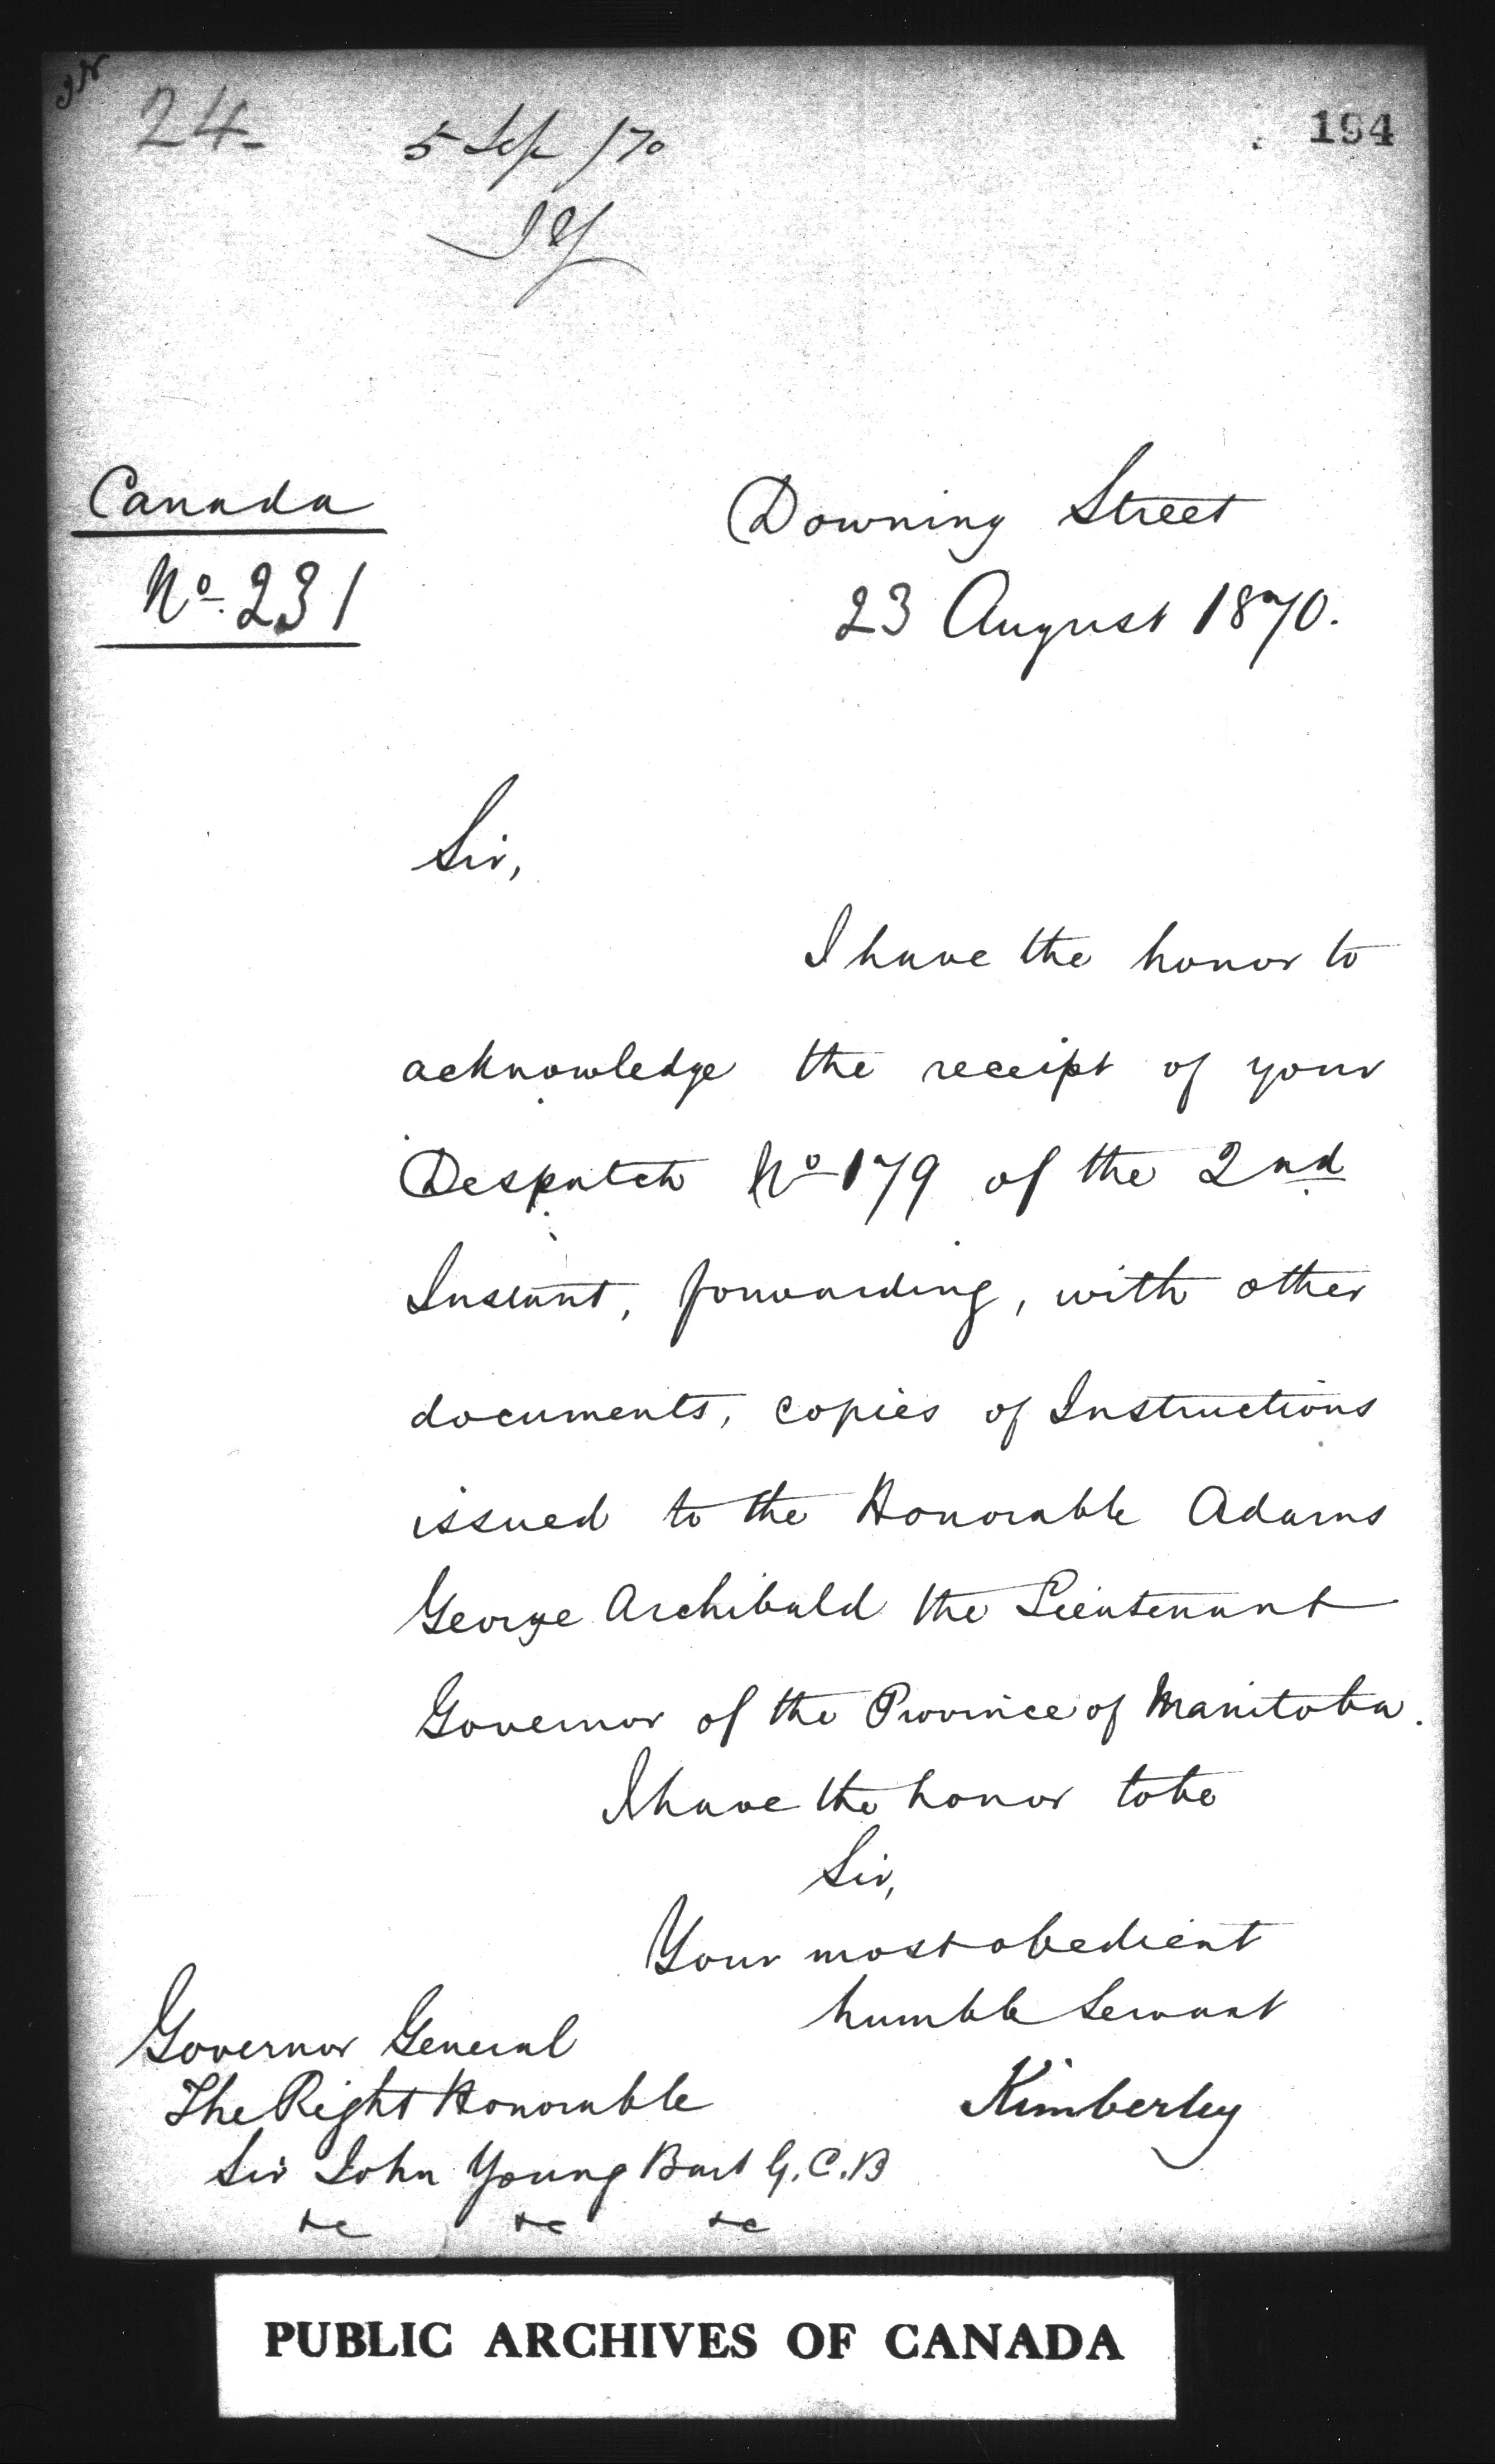 24
194
5 Sep /70
JY
Canada
No. 231
Downing Street
23 August 1870.
Sir,
I have the honor to
acknowledge the receipt of your
Despatch No 179 of the 2nd
Instant, forwarding, with other
documents, copies of Instructions
issued to the Honorable Adams
George Archibald the Lieutenant
Governor of the Province of Manitoba.
I have the honor to be
Sir,
Your most obedient
humble Servant
Kimberley
Governor General
The Right Honorable
Sir John Young Bart G.C.B
&c &c &c
PUBLIC ARCHIVES OF CANADA